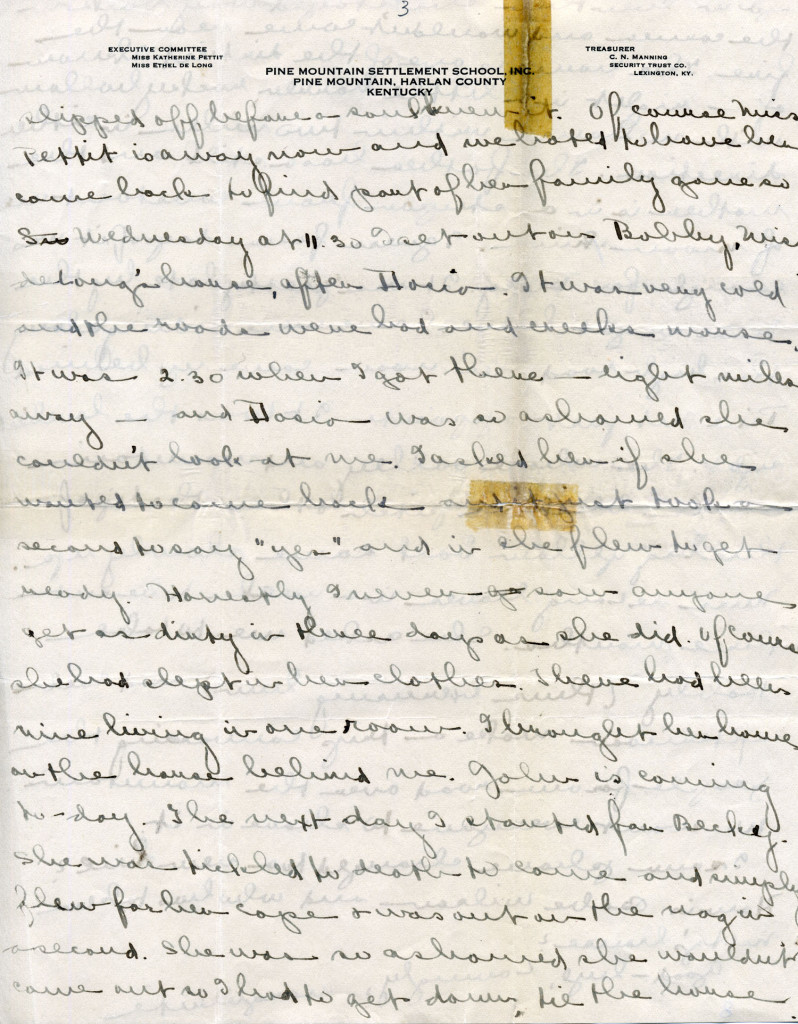 3
EXECUTIVE COMMITTEE
MISS KATHERINE PETTIT
MISS ETHEL DE LONG
TREASURER
C. N. MANNING
SECURITY TRUST CO.
LEXINGTON, KY.
PINE MOUNTAIN SETTLEMENT SCHOOL, INC.
PINE MOUNTAIN, HARLAN COUNTY
KENTUCKY
slipped off before a soul knew it. Of course Miss
Pettit is away now and we hated to have her
come back to find part of her family gone so
Wednesday at 11.30 I set out on Bobby, Miss
de Long's horse, after . It was very cold
and the roads were bad and creeks worse.
It was 2.30 when I got there — eight miles
away — and was so ashamed she
couldn't look at me. I asked her if she
wanted to come back and it just took a
second to say "yes" and in she flew to get
ready. Honestly I never saw anyone
get as dirty in three days as she did. Of course
she had slept in her clothes. There had been
nine living in one room. I brought her home
on the horse behind me. John is coming
to-day. The next day I started for Beckey.
She was tickled to death to come and simply
flew for her cape & was out on the nag in
a second. She was so ashamed she wouldn't
come out so I had to get down, tie the horse